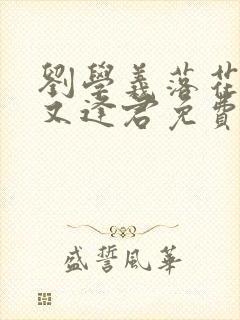 劉學義落花
又逢君免費
盛誓風華